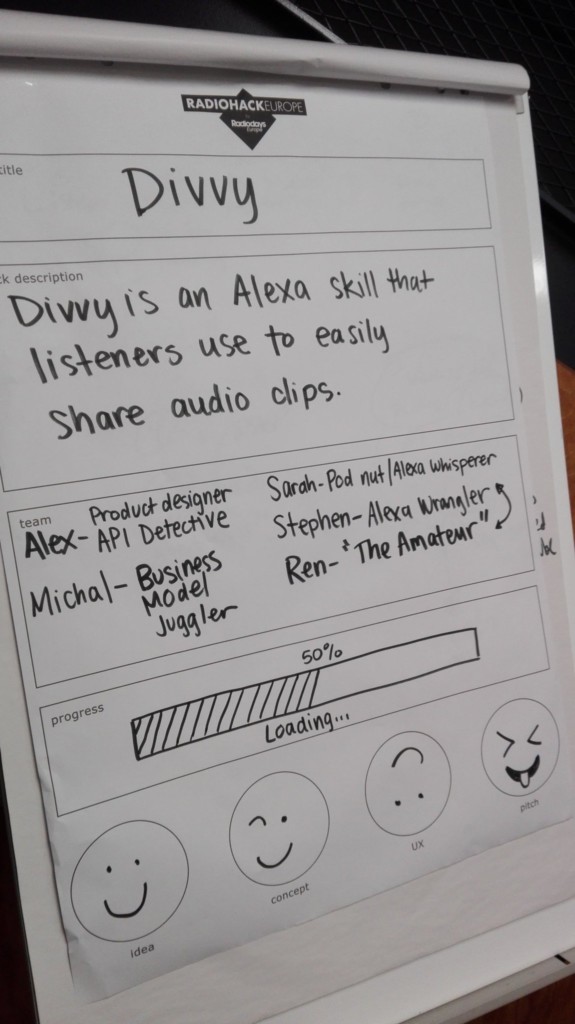 RADIOHACKEUROPE
Radiodays
Europe
title
Divvy
k description
Divvy is an Alexa skill that
listeners use to easily
share audio clips.
team
Alex- Product designer
API Detective
Michal- Business
Model
Juggler
Sarah-Pod nut/Alexa whisperer
Stephen-Alexa Wrangler
Ren- "The Amateur"
progress
50%
Loading...
idea
concept
UX
pitch